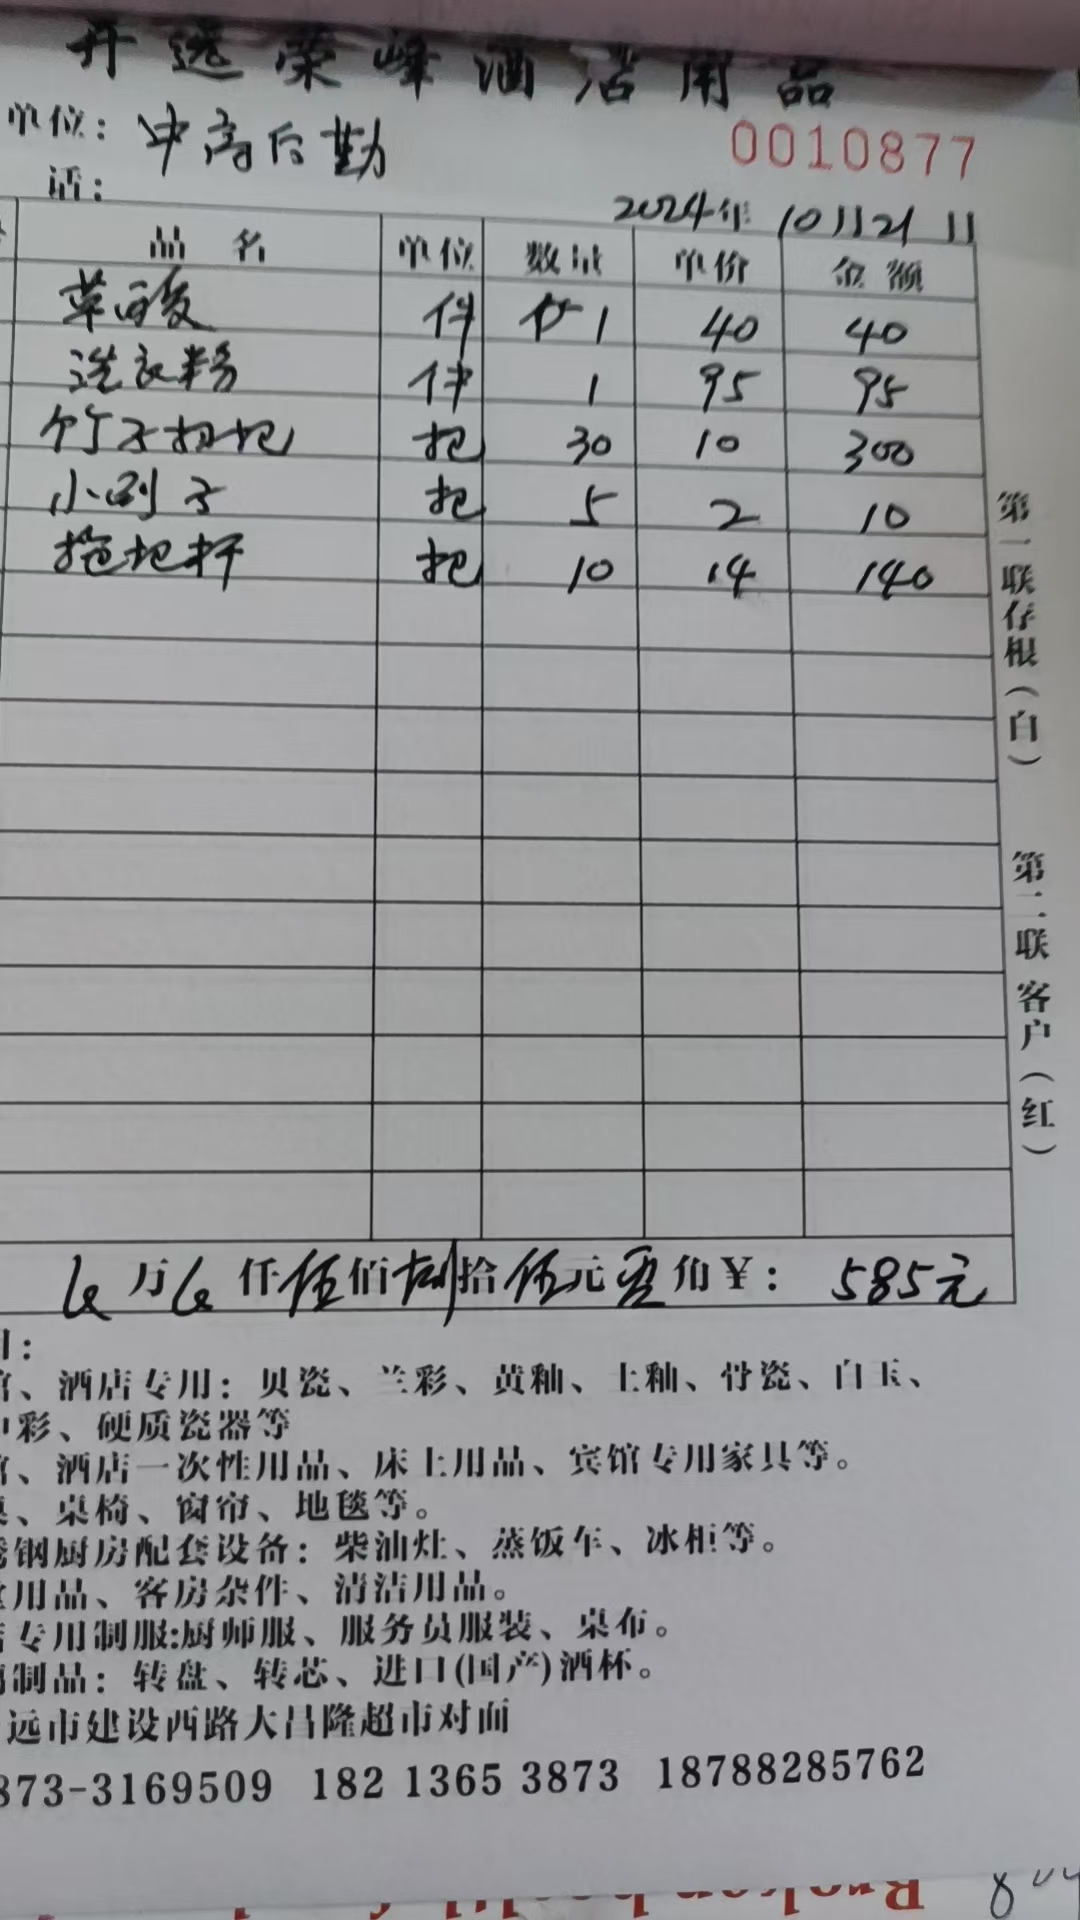 开远荣峰酒店用品
单位：中高后勤
0010877
话：
2024年10月21日
品名 单位 数量 单价 金额
草酸 件 1 40 40
洗衣粉 件 1 95 95
竹子扫把 把 30 10 300
小刷子 把 5 2 10
拖把杆 把 10 14 140
第一联存根（白） 第二联客户（红）
万 仟伍佰捌拾伍元零角￥：585元
：
、酒店专用：贝瓷、兰彩、黄釉、土釉、骨瓷、白玉、
彩、硬质瓷器等
、酒店一次性用品、床上用品、宾馆专用家具等。
、桌椅、窗帘、地毯等。
钢厨房配套设备：柴油灶、蒸饭车、冰柜等。
用品、客房杂件、清洁用品。
专用制服:厨师服、服务员服装、桌布。
制品：转盘、转芯、进口(国产)酒杯。
远市建设西路大昌隆超市对面
873-3169509 182 1365 3873 18788285762